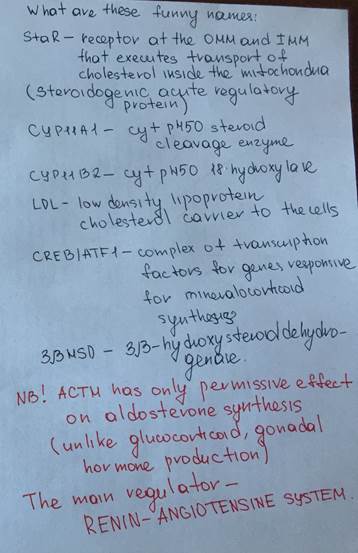 What are these funny names:
StaR - receptor at the OMM and IMM
that executes transport of
cholesterol inside the mitochondria
(steroidogenic acute regulatory
protein)
CYP11A1 - cyt p450 steroid
cleavage enzyme
CYP11B2 - cyt p450 18-hydroxylase
LDL - low density lipoprotein
cholesterol carrier to the cells
CREB/ATF1 - complex of transcription
factors for genes, responsive
for mineralocorticoid
synthesis
3βHSD - 3β-hydroxysteroid dehydro-
genase.
NB! ACTH has only permissive effect
on aldosterone synthesis
(unlike glucocorticoid, gonadal
hormone production)
The main regulator -
RENIN-ANGIOTENSINE SYSTEM.